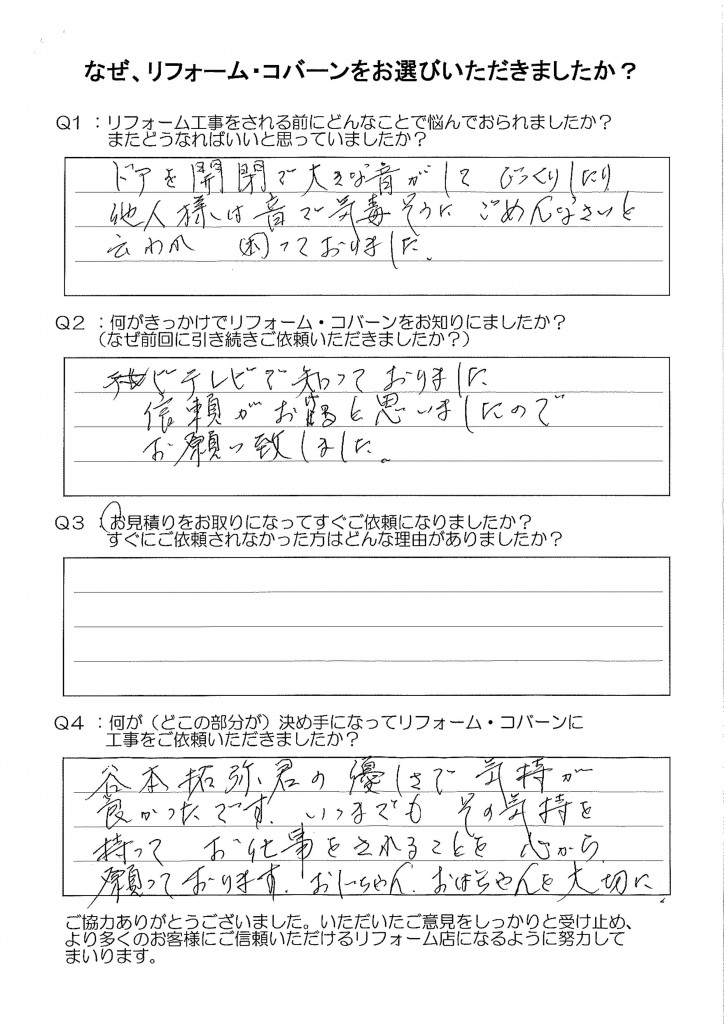 なぜ、リフォーム・コバーンをお選びいただきましたか？
Q1 ：リフォーム工事をされる前にどんなことで悩んでおられましたか？
またどうなればいいと思っていましたか？
ドアを開閉で大きな音がして びっくりしたり
他人様は音で気毒そうに ごめんなさいと
云われ 困っておりました。
Q2 ：何がきっかけでリフォーム・コバーンをお知りにましたか？
（なぜ前回に引き続きご依頼いただきましたか？）
テレビで知っておりました
信頼がお出来ると思いましたので
お願い致しました。
Q3 ：お見積りをお取りになってすぐご依頼になりましたか？
すぐにご依頼されなかった方はどんな理由がありましたか？
Q4 ：何が（どこの部分が）決め手になってリフォーム・コバーンに
工事をご依頼いただきましたか？
谷本拓弥君の優しさで気持が
良かったです。いつまでも その気持を
持って お仕事をされることを 心から
願っております。おにいちゃん、おばちゃんを大切に
ご協力ありがとうございました。いただいたご意見をしっかりと受け止め、
より多くのお客様にご信頼いただけるリフォーム店になるように努力して
まいります。